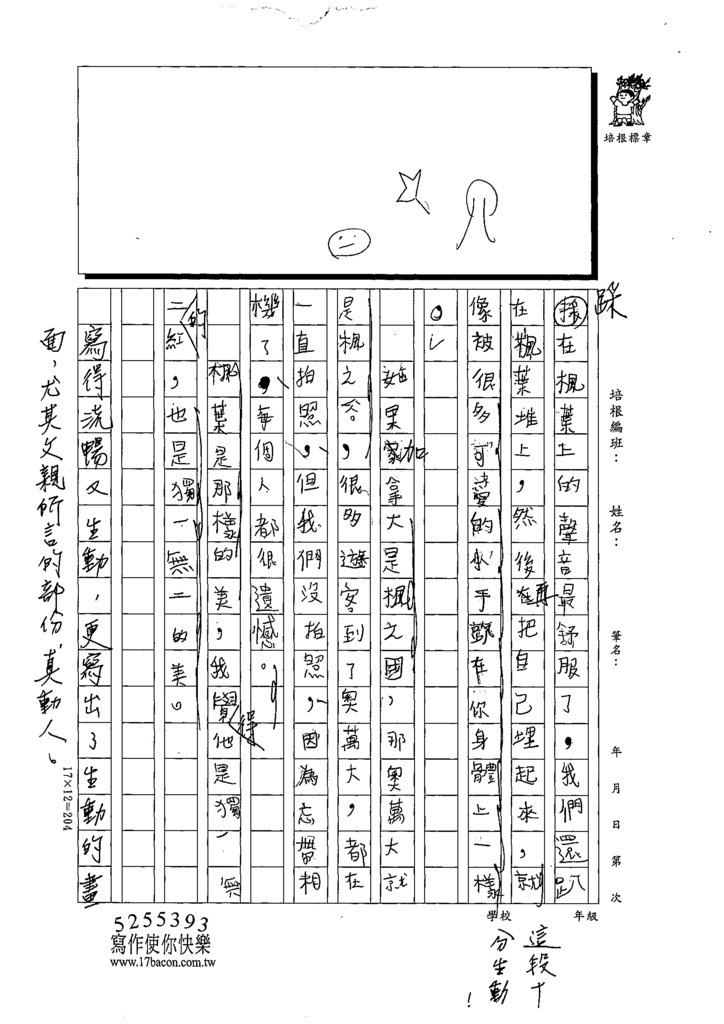 培根標章
培根編班：
姓名：
筆名：
年 月 日 第 次
踩
採在楓葉上的聲音最舒服了，我們還趴
在楓葉堆上，然後在再把自己埋起來，就
像被很多可愛的小手 在你身體上一樣
。
如果家加拿大是楓之國，那奧萬大就
是楓之谷，很多遊客到了奧萬大，都在
一直拍照，但我們沒拍照，因為忘 相
機了，每個人都很遺憾。
楓葉是那樣的美，我覺得他是獨一無
二的紅，也是獨一無二的美。
寫得流暢又生動，更寫出了生動的畫
面，尤其文親所言的部份，真動人。
17×12=204
學校
年級
這段十
分生動
！
5255393
寫作使你快樂
www.17bacon.com.tw